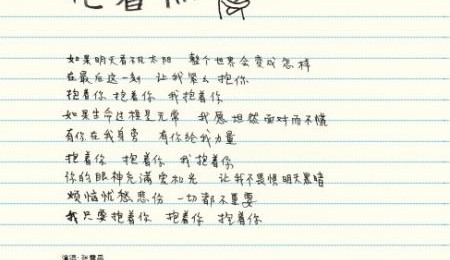 抱着你
如果明天看不见太阳 整个世界会变成怎样
在最后这一刻 让我紧紧抱你
抱着你 抱着你 我抱着你
如果生命过程是无常 我愿坦然面对而不慌
有你在我身旁 有你给我力量
抱着你 抱着你 我抱着你
你的眼神充满爱和光 让我不畏惧明天黑暗
烦恼忧愁悲伤 一切都不重要
我只要抱着你 抱着你 抱着你
演唱:张